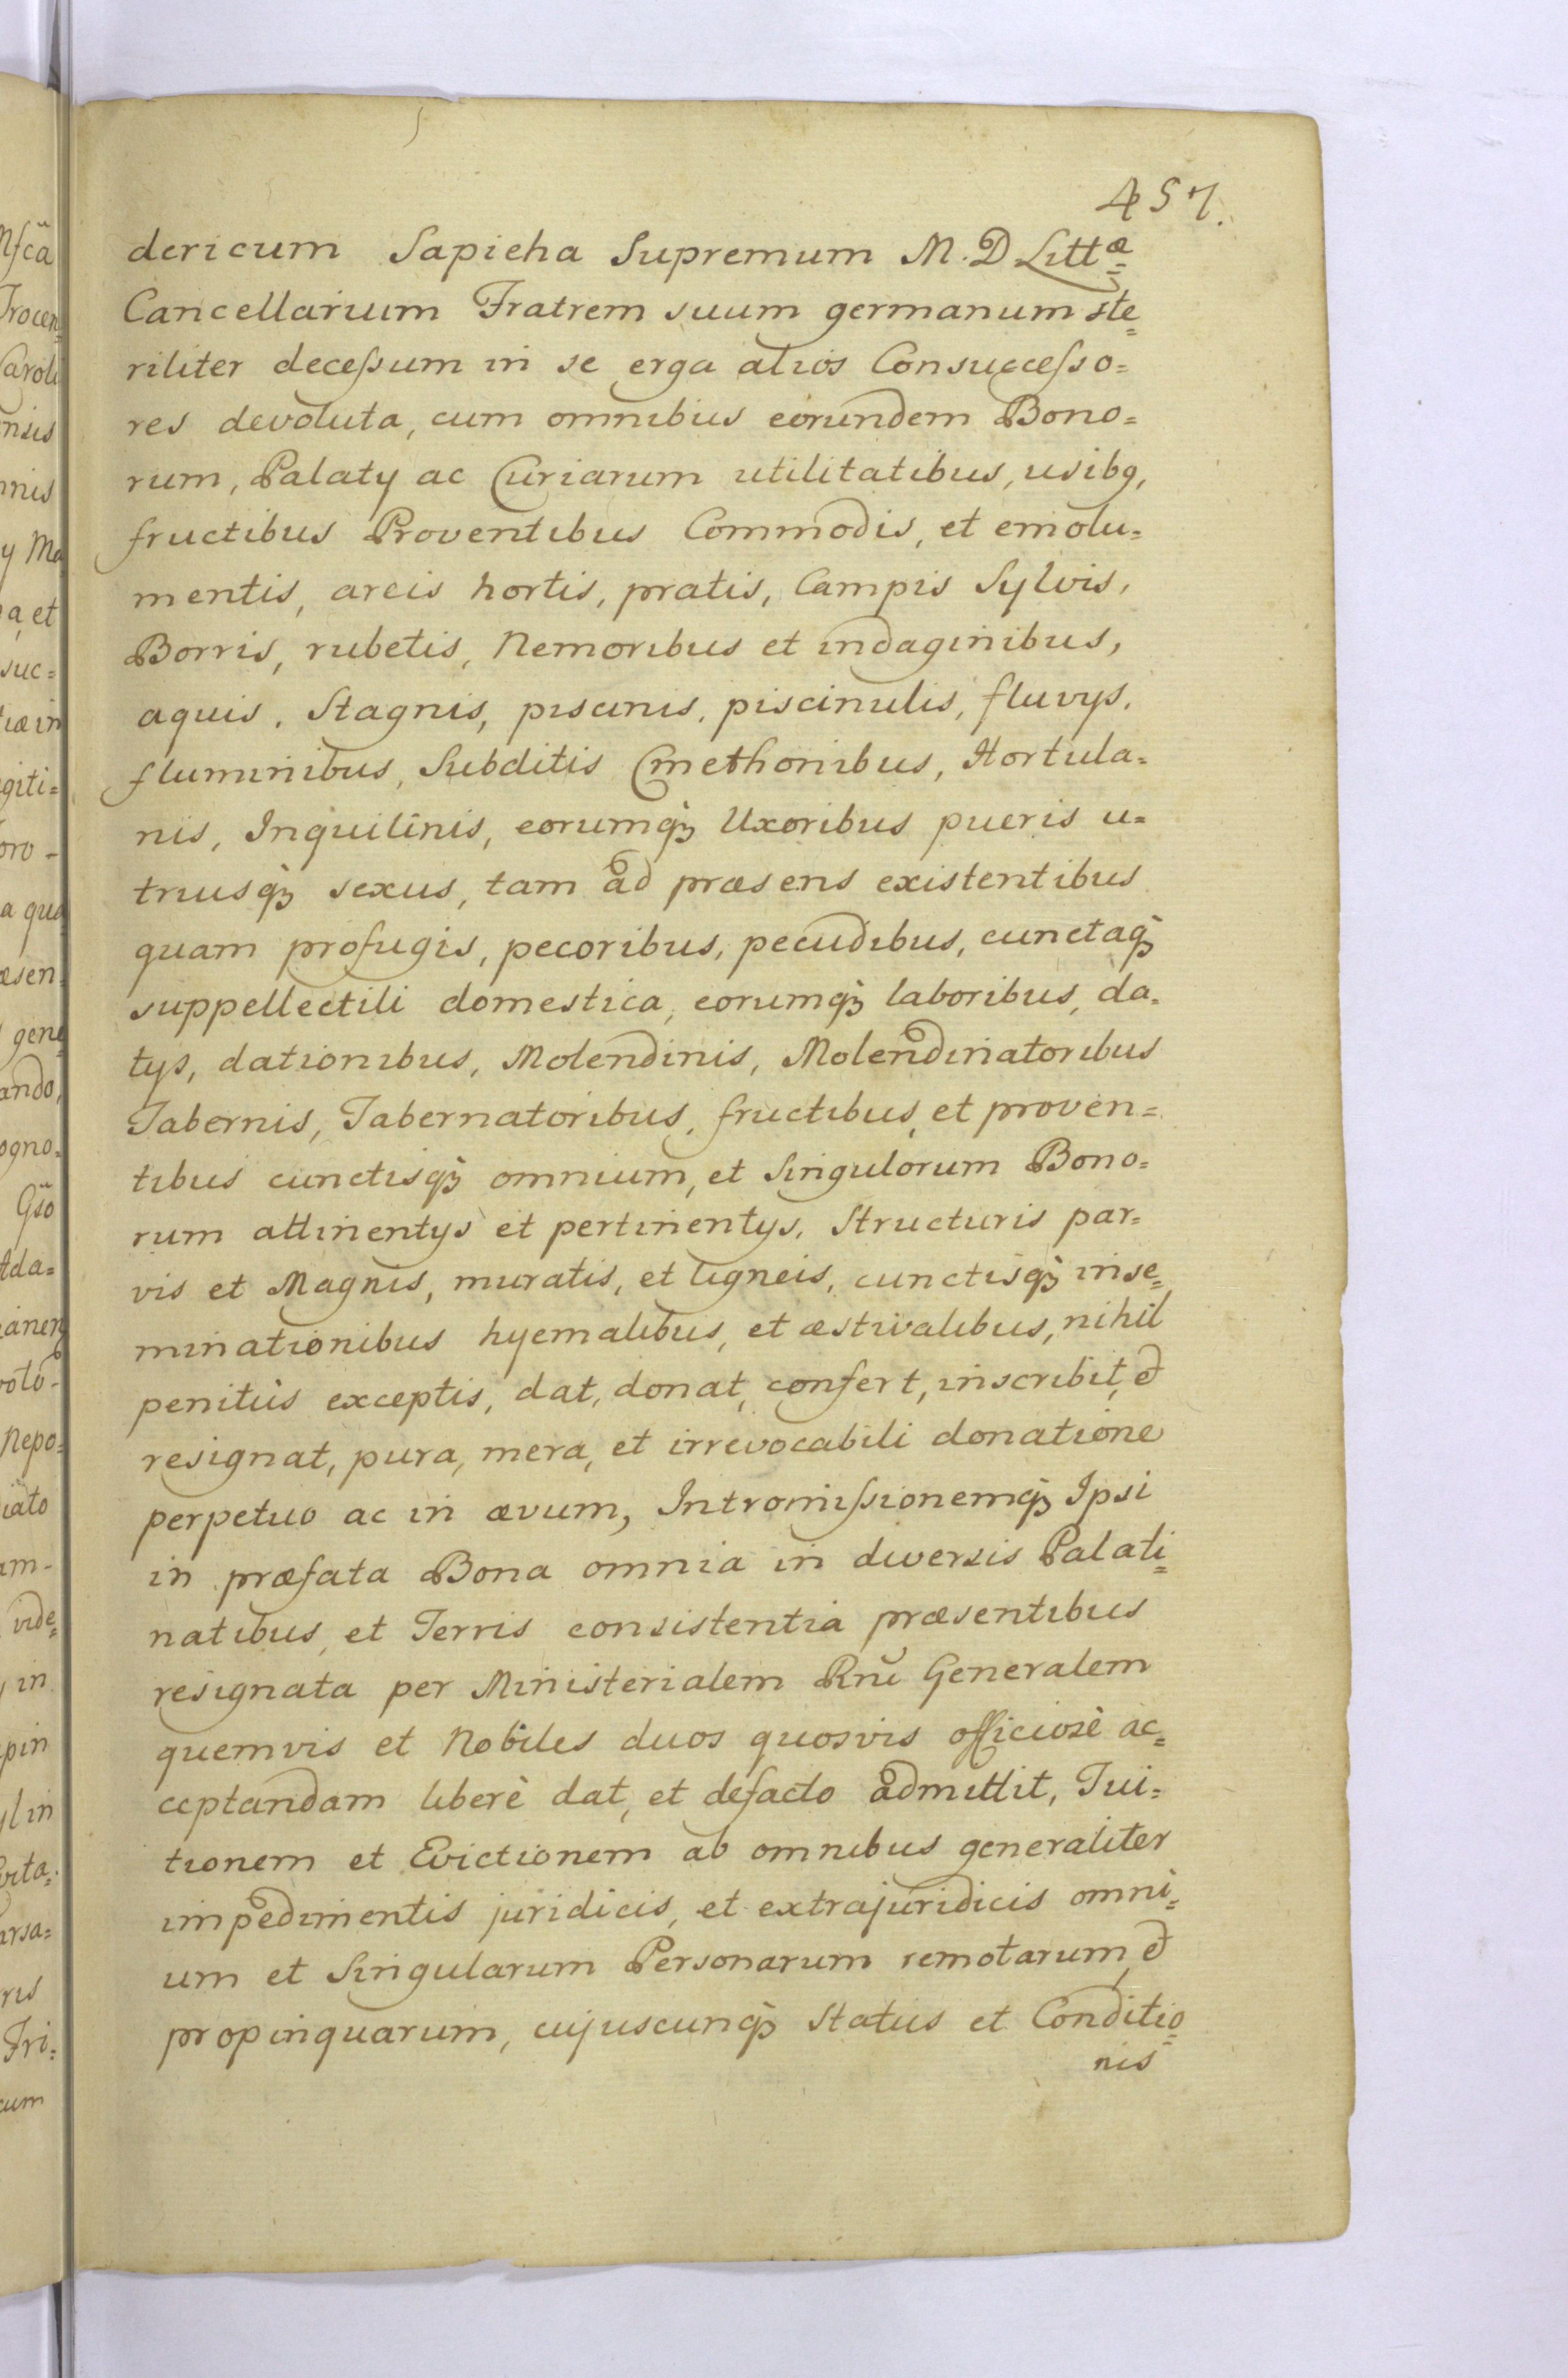 457.
dericum Sapieha Supremum M. D Littæ=
Cancellarium Fratrem suum germanum ste=
riliter deceſsum in se erga alios Consucceſso=
res devoluta, cum omnibus eorundem Bono=
rum, Palaty ac Curiarum utilitatibus, usibq,
fructibus Proventibus Commodis, et emolu=
mentis, areis hortis, pratis, Campis Sylvis,
Borris, rubetis, Nemoribus et indaginibus,
aquis, Stagnis, piscinis, piscinulis, fluvys,
fluminibus, Subditis Cmethonibus, Hortula=
nis, Inquilinis, eorumq̃ Uxoribus pueris u=
triusq̃ sexus, tam ad præsens existentibus
quam profugis, pecoribus, pecudibus, cunctaq̃
suppellectili domestica, eorumq̃ laboribus, da=
tys, dationibus, Molendinis, Molendinatoribus
Tabernis, Tabernatoribus, fructibus, et proven=
tibus cunctisq̃ omnium, et Singulorum Bono=
rum attinentys et pertinentys, Structuris par=
vis et Magnis, muratis, et ligneis, cunctisq̃ inse=
minationibus hyemalibus, et æstivalibus, nihil
penitùs exceptis, dat, donat, confert, inscribit, et
resignat, pura, mera, et irrevocabili donatione
perpetuo ac in ævum, Intromiſsionemq̃ Ipsi
in præfata Bona omnia in diversis Palati=
natibus, et Terris consistentia præsentibus
resignata per Ministerialem Rnĩ Generalem
quemvis et Nobiles duos quosvis officiosè ac=
ceptandam liberè dat, et defacto admittit, Tui=
tionem et Evictionem ab omnibus generaliter
impedimentis juridicis, et extrajuridicis omni=
um et Singularum Personarum remotarum, et
propinquarum, cujuscunq̃ Status et Conditio=
nis